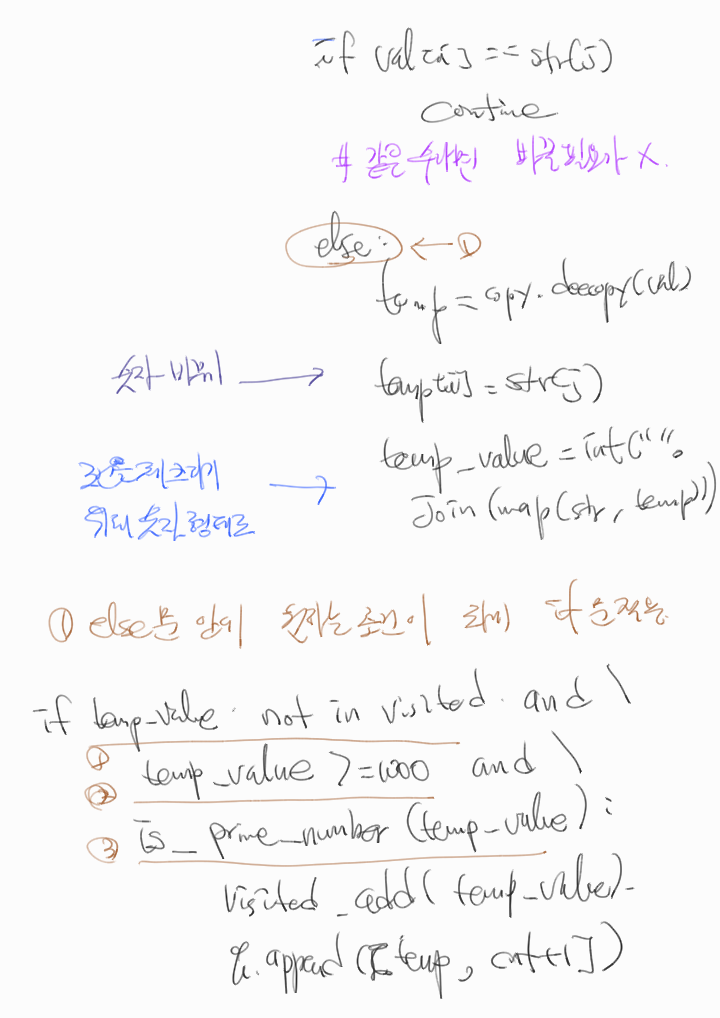 if val[i] == str(j)
continue
# 같은 수라면 바꿀필요가 X.
else: ← ①
temp = copy.deecopy(val)
숫자 바꾸기 → temp[i] = str(j)
temp_value = int("".
join(map(str, temp)))
위해 숫자 형태로
① else문 안에
if temp_value not in visited and \
① temp_value >=1000 and \
②
③ is_prime_number (temp_value):
visited_add( temp_value).
q.append([temp, cnt+1])